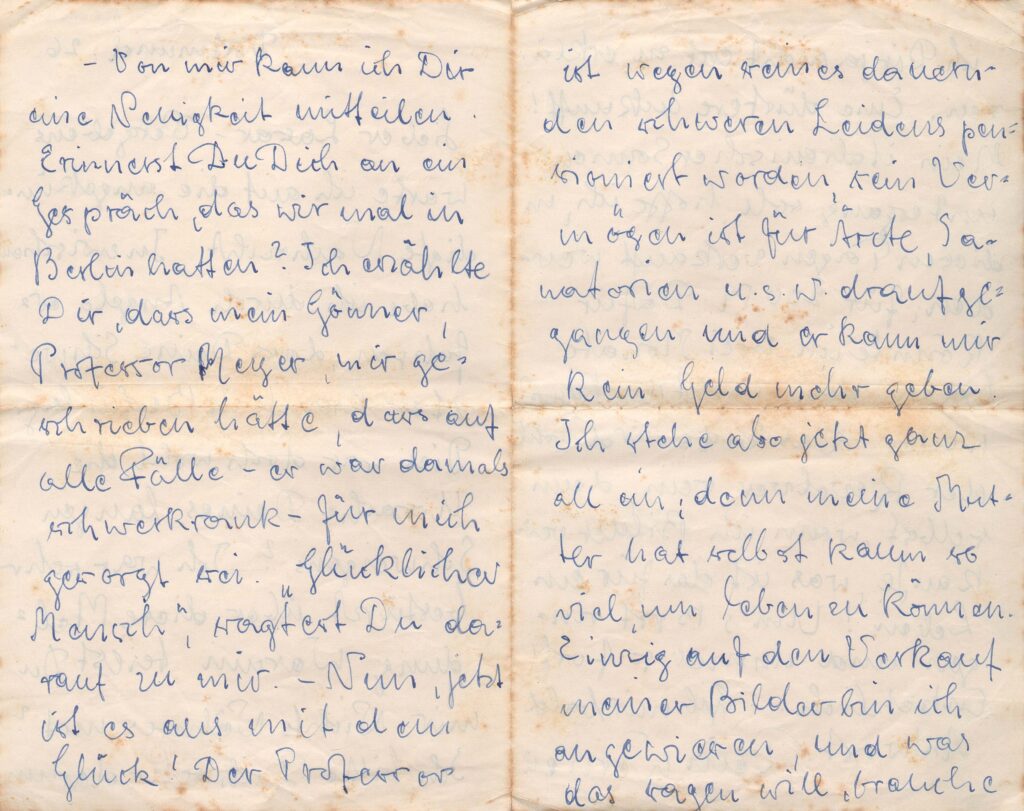 - Von mir kann ich Dir
eine Neuigkeit mitteilen.
Erinnerst Du Dich an ein
Gespräch, das wir mal in
Berlin hatten? Ich erzählte
Dir, dass mein Gönner,
Professor Meyer, mir ge=
schrieben hätte, dass auf
alle Fälle - er war damals
schwerkrank - für mich
gesorgt sei. „Glücklicher
Mensch", sagtest Du da=
rauf zu mir. - Nun, jetzt
ist es aus mit dem
Glück! Der Professor
ist wegen seines dauern-
den schweren Leidens pen=
sioniert worden, sein Ver=
mögen ist für Ärzte, Sa-
natorien u.s.w. draufge=
gangen und er kann mir
kein Geld mehr geben.
Ich stehe also jetzt ganz
allein; denn meine Mut-
ter hat selbst kaum so
viel, um leben zu können.
Einzig auf den Verkauf
meiner Bilder bin ich
angewiesen, und was
das sagen will, brauche